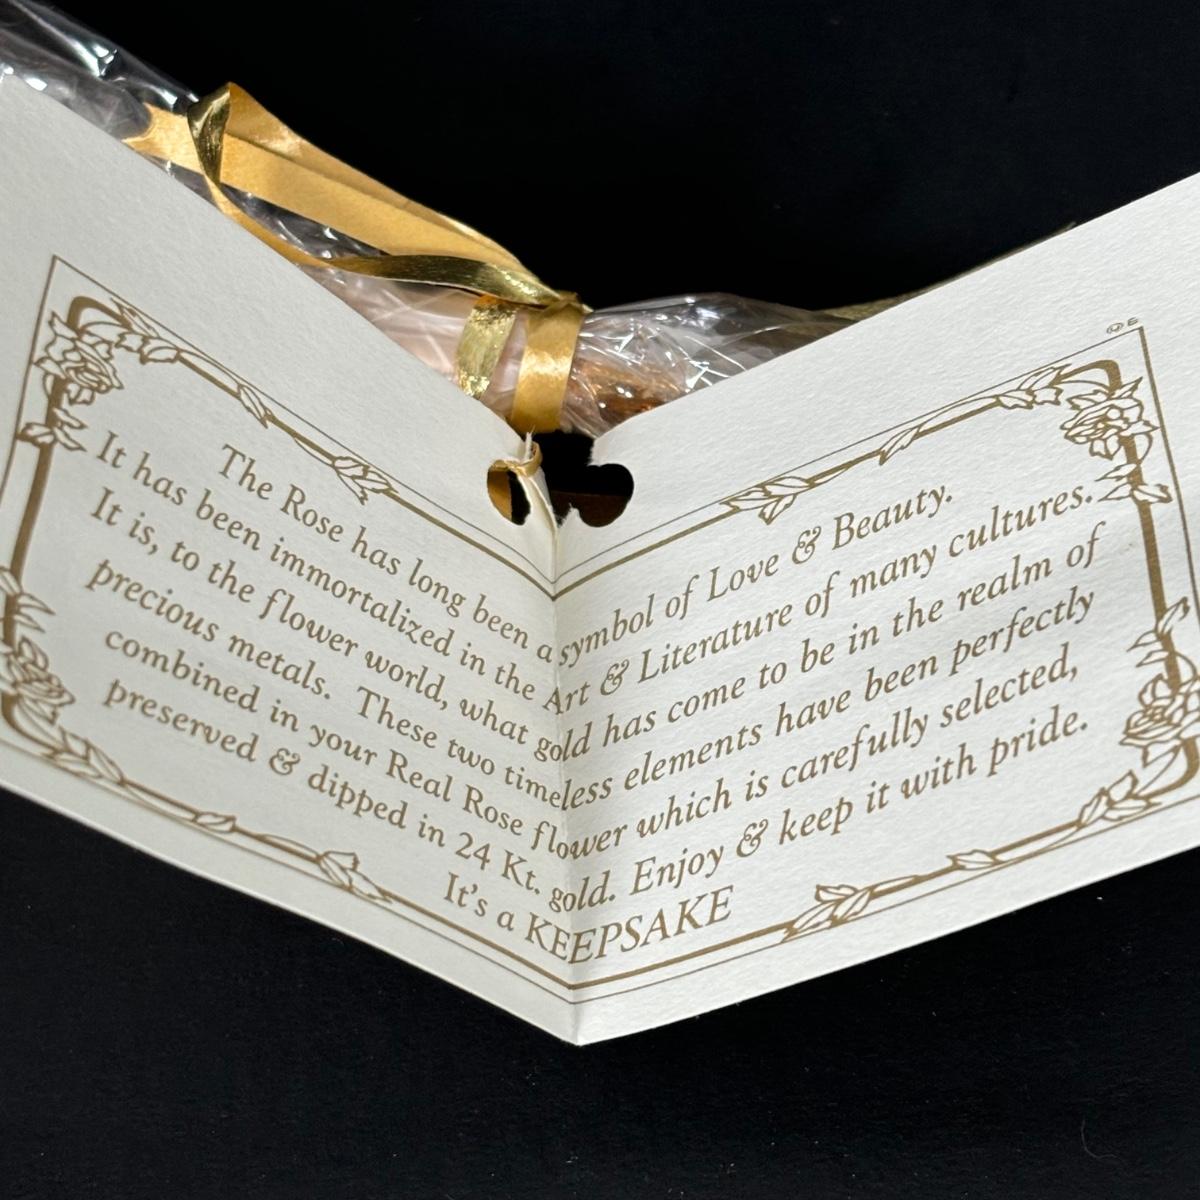 The Rose has long been a symbol of Love & Beauty.
It has been immortalized in the Art & Literature of many cultures.
It is, to the flower world, what gold has come to be in the realm of
precious metals. These two timeless elements have been perfectly
combined in your Real Rose flower which is carefully selected,
preserved & dipped in 24 Kt. gold. Enjoy & keep it with pride.
It's a KEEPSAKE